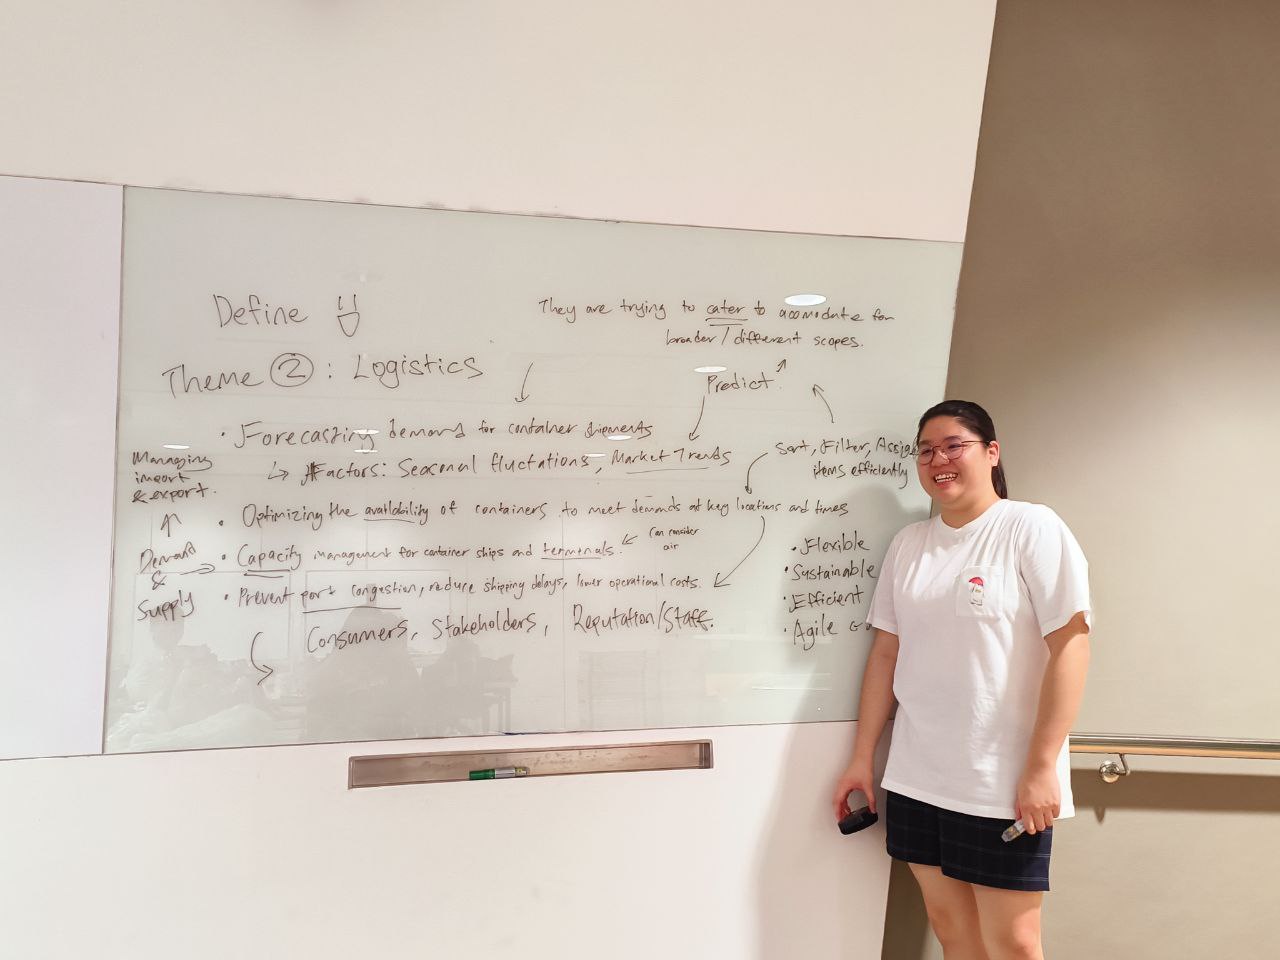 Define
Theme ② : Logistics
They are trying to cater to accomodate for
broader / different scopes.
Predict.
• Forecasting demand for container shipments
↳ Factors: Seasonal fluctations, Market Trends
Sort, Filter, Assign
items efficiently
Managing
import
& export.
• Optimizing the availability of containers to meet demands at key locations and times
Demand
&
Supply
• Capacity management for container ships and terminals.
Can consider
air
• Prevent port congestion, reduce shipping delays, lower operational costs.
Consumers, Stakeholders, Reputation/Staff.
• Flexible
• Sustainable
• Efficient
• Agile